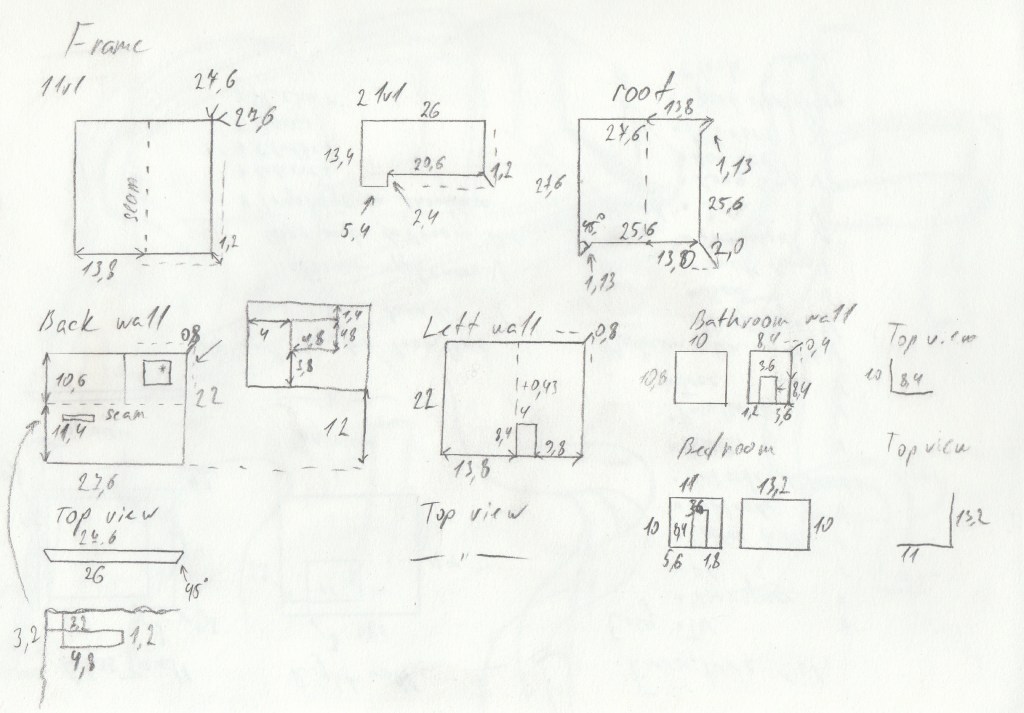 Frame
1 lvl
27,6
27,6
seam
1,2
13,8
2 lvl
26
13,4
20,6
1,2
5,4
2,4
roof
13,8
27,6
27,6
1,13
25,6
45°
25,6
13,8
2,0
1,13
Back wall
0,8
10,6
22
seam
11,4
27,6
1,4
4
4,8
4,8
3,8
12
Left wall
0,8
22
1+0,43
4
8,4
9,8
13,8
Bathroom wall
10
8,4
0,4
10,8
3,6
8,4
1,2
3,6
Top view
10
8,4
Bedroom
11
13,2
10
3,6
8,4
10
5,6
1,8
Top view
13,2
11
Top view
26
45°
Top view
3,2
3,2
1,2
4,8